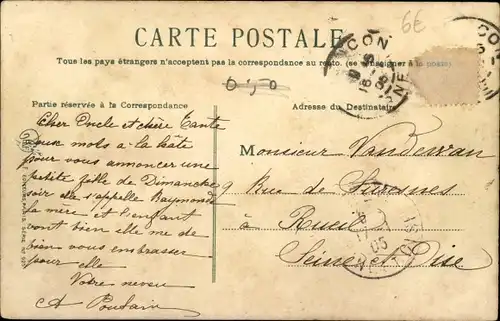 6€
CARTE POSTALE
Tous les pays étrangers n'acceptent pas la correspondance au recto. (se renseigner à la poste)
0,50
Partie réservée à la Correspondance
Adresse du Destinataire
Cher Oncle et chère Tante
deux mots a la hâte
pour vous annoncer une
petite fille de Dimanche
soir elle s'appelle Raymonde
la mère et l'enfant
vont bien elle me de
bien vous embrasser
pour elle
Votre neveu
A Poulain
Monsieur
9 Rue de Suresnes
à Rueil
Seine et Oise